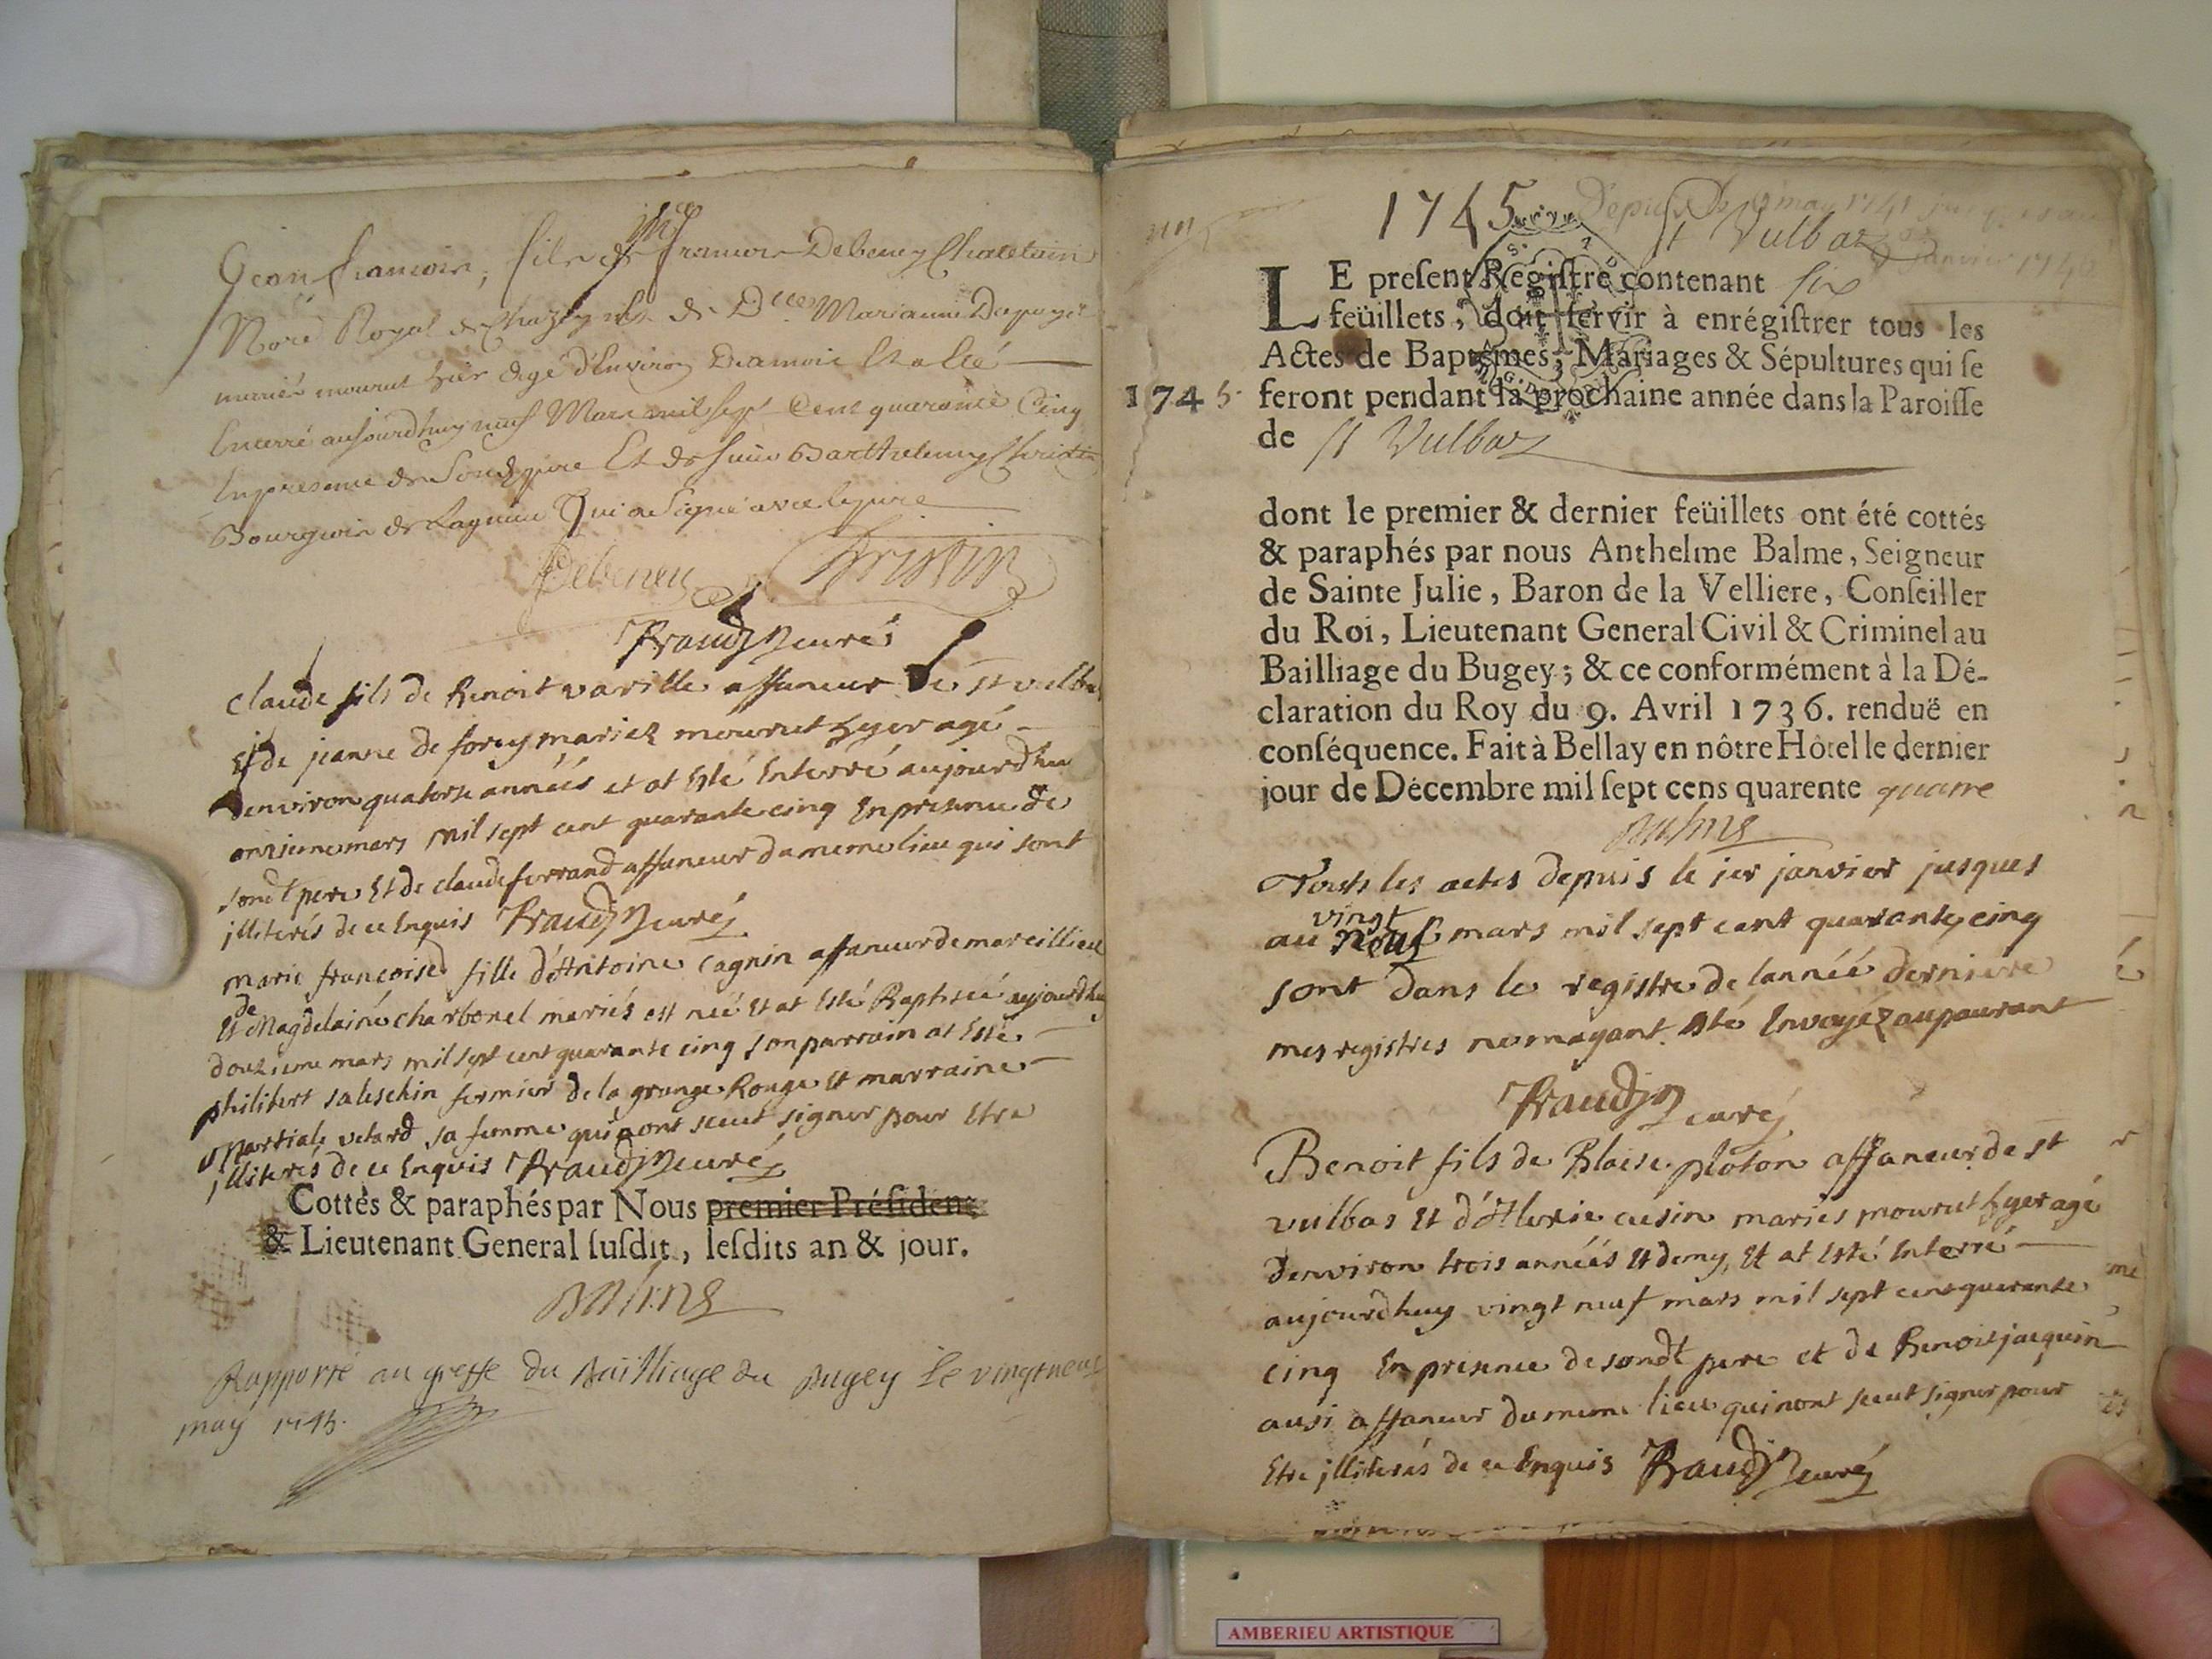 Jean francois, fils de Mre francois Debeney Chatelain
Nore Royal de Chazey et de Dlle Marianne
mariés mourut hier agé d'Environ Et a Eté
Enterré aujourdhuy neuf Mars mil sept Cent quarante Cinq
En presence de Sondt pere Et de sieur Barthelemy Christin
Bourgeois de Lagnieu Qui a Signé avec le pere
Debeney Christin
Kraudy curé
claude fils de Benoit varille affaneur de st vulbas
Et de jeanne de forey mariez mourut hyer agé
denviron quatorse années et at Esté Enterré aujourdhuy
onsieme mars mil sept cent quarante cinq En presence de
sondt pere Et de claude ferrand affaneur du meme lieu qui sont
jlliterés de ce Enquis curé
marie francoise fille d'Antoine cagnin affaneur de marcillieu
de
Et Magdelaine charbonel mariés est née Et at Esté Baptisée aujourdhuy
douzieme mars mil sept cent quarante cinq son parrain at Esté
philibert fermier de la grange Rouge Et marraine
Martiale velard sa femme qui nont sceut signer pour Etre
jlliterés de ce Enquis curé
Cottés & paraphés par Nous premier Présiden
& Lieutenant General suſdit, leſdits an & jour.
Balme
Rapporté au greffe du Bailliage du Bugey le vingtneuf
may 1745.
1745
Depuis le may 1741
St Vulbaz
janvier 1746
LE preſent Regiſtre contenant six
feüillets, doit ſervir à enrégiſtrer tous les
Actes de Baptêmes, Mariages & Sépultures qui ſe
1745 feront pendant la prochaine année dans la Paroiſſe
de St Vulbaz
dont le premier & dernier feüillets ont été cottés
& paraphés par nous Anthelme Balme, Seigneur
de Sainte Julie, Baron de la Velliere, Conſeiller
du Roi, Lieutenant General Civil & Criminel au
Bailliage du Bugey; & ce conformément à la Dé-
claration du Roy du 9. Avril 1736. renduë en
conſéquence. Fait à Bellay en nôtre Hôtel le dernier
jour de Décembre mil ſept cens quarente quatre
Balme
Touts les actes depuis le jer janvier jusques
vingt
au neuf mars mil sept cent quarante cinq
sont dans le registre de lannéé derniere
mes registres ne mayant Esté Envoyéz auparavant
curé
Benoit fils de Blaise ploton affaneur de st
vulbas Et d'Hlerie cusin mariés mourut hyer agé
denviron trois annéés Et demy, Et at Esté Enterré
aujourdhuy vingt neuf mars mil sept cent quarante
cinq En presence de sondt pere et de Benoit jacquin
ausi affaneur du meme lieu qui nont sceut signer pour
Etre jlliterés de ce Enquis curé
AMBERIEU ARTISTIQUE